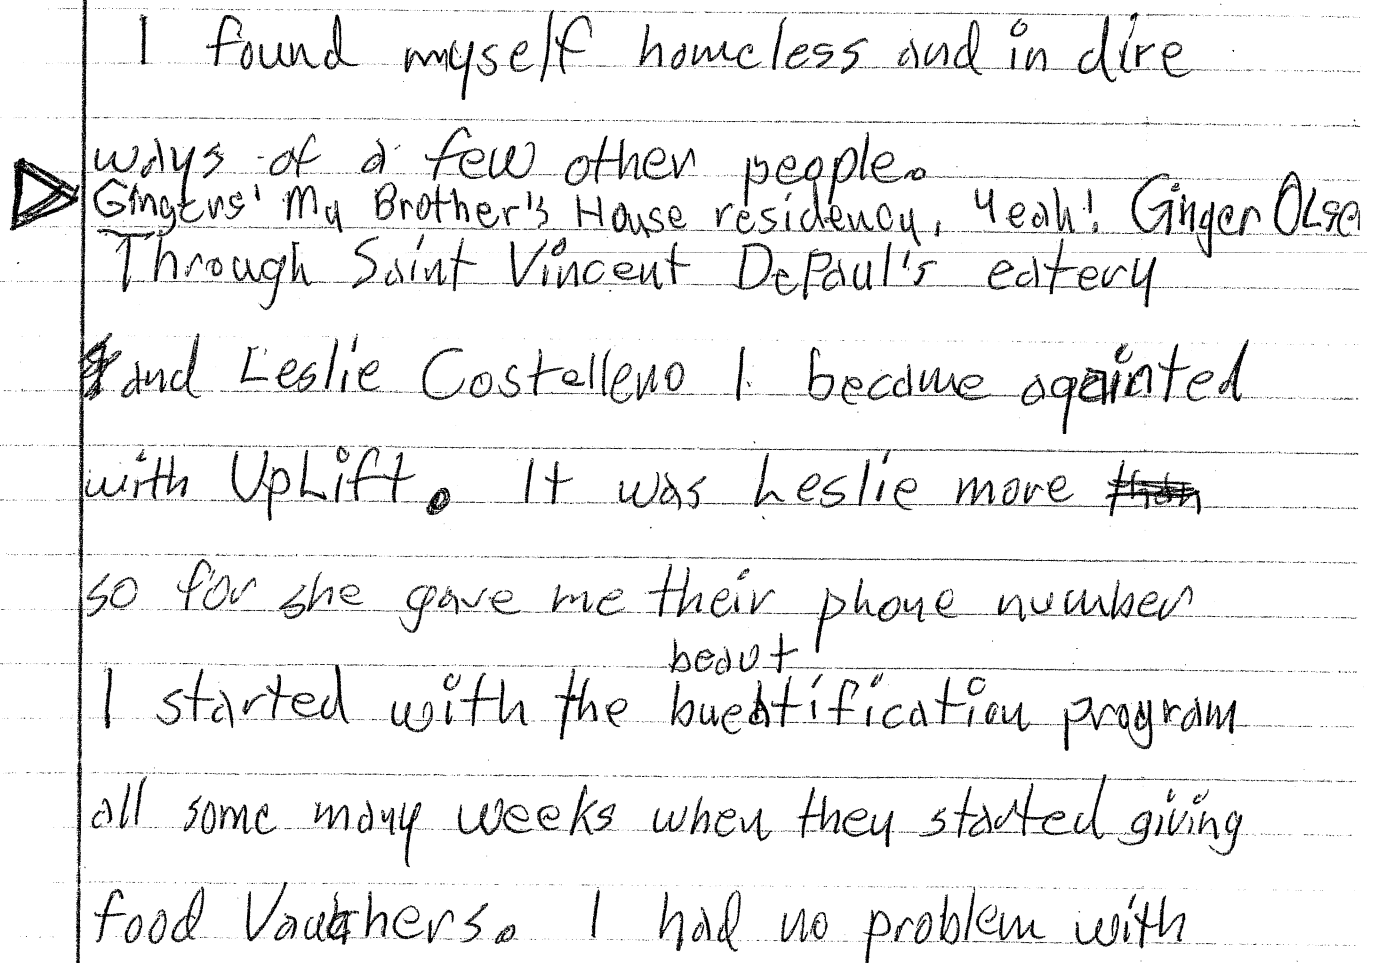 I found myself homeless and in dire
ways of a few other people.
Gingers' My Brother's House residency, Yeah! Ginger Olse
Through Saint Vincent DePaul's eatery
and Leslie Costelleno I became aqainted
with UpLift. It was Leslie more than
so for she gave me their phone number
beaut
I started with the bueatification program
all some many weeks when they started giving
food Vauchers. I had no problem with